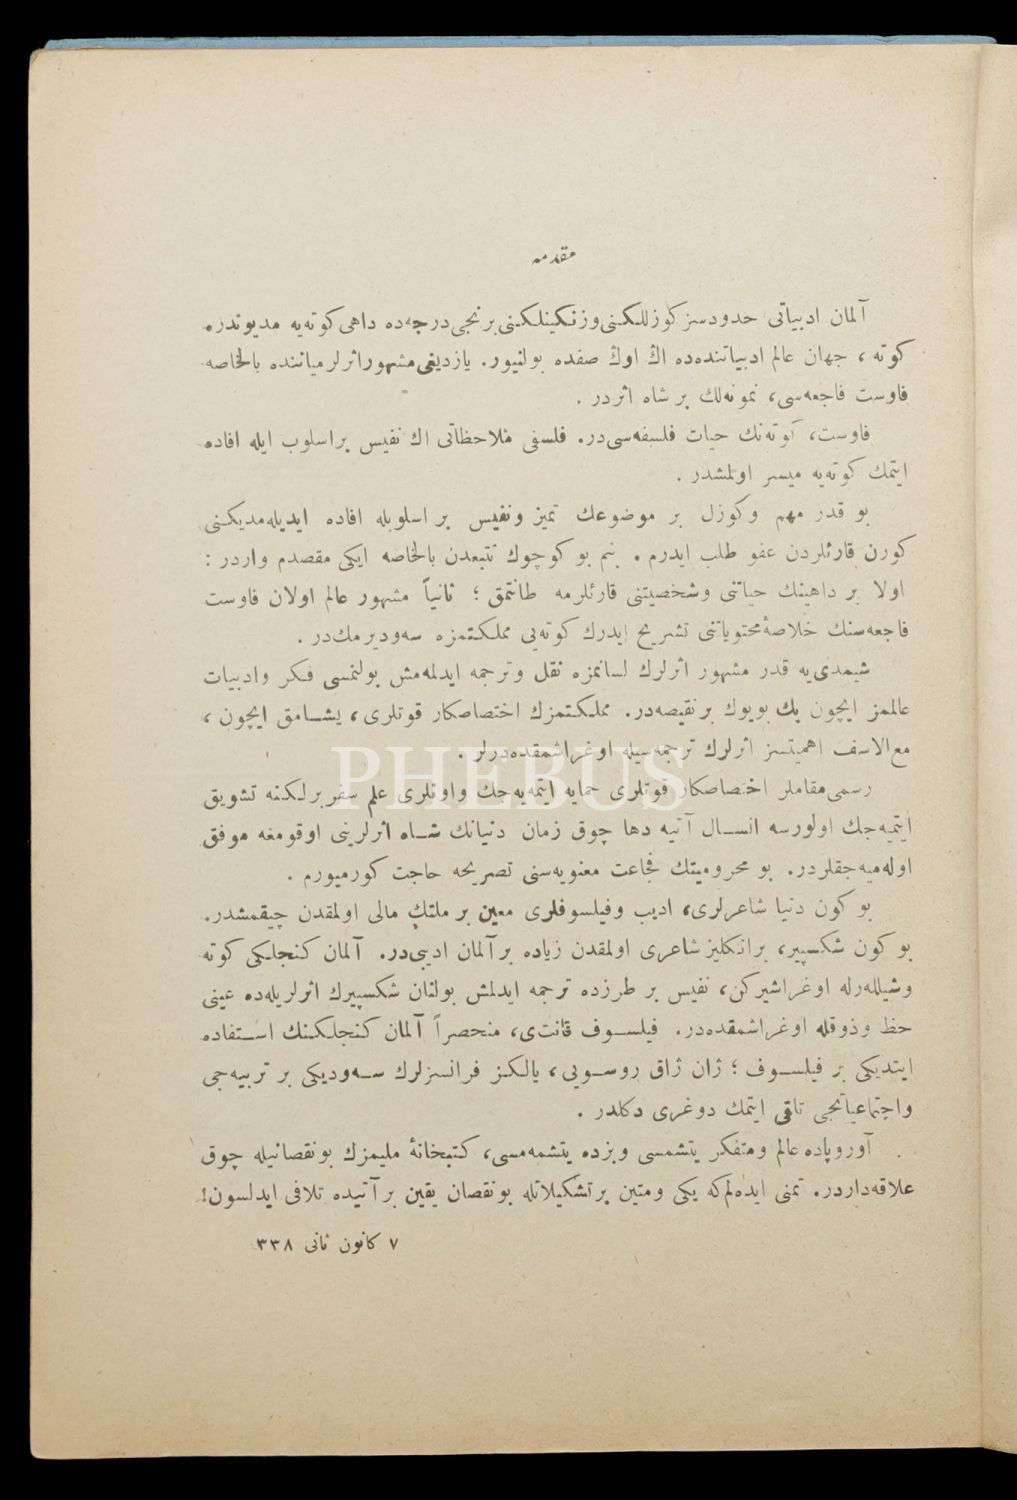 مقدمه
آلمان ادبياتى حدودسز كوزللكنى وزنكينلكنى برنجى درجه‌ده داهى كوته‌يه مديوندر.
كوته ، جهان عالم ادبياتنده‌ده اڭ اوڭ صفده بولنيور. يازديغى مشهور اثرلر مياننده بالخاصه
فاوست فاجعه‌سى، نمونه‌لك بر شاه اثردر .
فاوست، كوته‌نك حيات فلسفه‌سى‌در. فلسفى ملاحظاتى اك نفيس بر اسلوب ايله افاده
ايتمك كوته‌يه ميسر اولمشدر .
بو قدر مهم وكوزل بر موضوعك تميز ونفيس بر اسلوبله افاده ايديله‌مديكنى
كورن قارئلردن عفو طلب ايدرم . بنم بو كوچوك تتبعدن بالخاصه ايكى مقصدم واردر :
اولا بر داهينك حياتنى وشخصيتنى قارئلرمه طانتمق ؛ ثانياً مشهور عالم اولان فاوست
فاجعه‌سنك خلاصۀ محتوياتنى تشريح ايدرك كوته‌يى مملكتمزه سه‌وديرمك‌در .
شيمدى‌يه قدر مشهور اثرلرك لسانمزه نقل وترجمه ايدلمه‌مش بولنمسى فكر وادبيات
عالممز ايچون پك بويوك بر نقيصه‌در. مملكتمزك اختصاصكار قوتلرى ، يشامق ايچون ،
مع‌الاسف اهميتسز اثرلرك ترجمه‌سيله اوغراشمقده‌درلر .
رسمى مقاملر اختصاصكار قوتلرى حمايه ايتمه‌يه‌جك واونلرى علم سفربرلكنه تشويق
ايتميه‌جك اولورسه انسال آتيه دها چوق زمان دنيانك شاه اثرلرينى اوقومغه موفق
اوله‌ميه‌جقلردر. بو محروميتك فجاعت معنويه‌سنى تصريحه حاجت كورميورم .
بو كون دنيا شاعرلرى، اديب وفيلسوفلرى معين بر ملتك مالى اولمقدن چيقمشدر.
بو كون شكسپير، بر انكليز شاعرى اولمقدن زياده بر آلمان اديبى‌در. آلمان كنجلكى كوته
وشيلله‌رله اوغراشيركن، نفيس بر طرزده ترجمه ايدلمش بولنان شكسپيرك اثرلريله‌ده عينى
حظ وذوقله اوغراشمقده‌در. فيلسوف قانت‌ى، منحصراً آلمان كنجلكنك استفاده
ايتديكى بر فيلسوف ؛ ژان ژاق روسويى، يالكز فرانسزلرك سه‌وديكى بر تربيه‌جى
واجتماعياتجى تلقى ايتمك دوغرى دكلدر .
آوروپاده عالم ومتفكر يتشمسى وبزده يتشمه‌مسى، كتبخانۀ مليمزك بو نقصانيله چوق
علاقه‌داردر. تمنى ايده‌لم‌كه يكى ومتين بر تشكيلاتله بو نقصان يقين بر آتيده تلافى ايدلسون!
٧ كانون ثانى ٣٣٨
PHEBUS